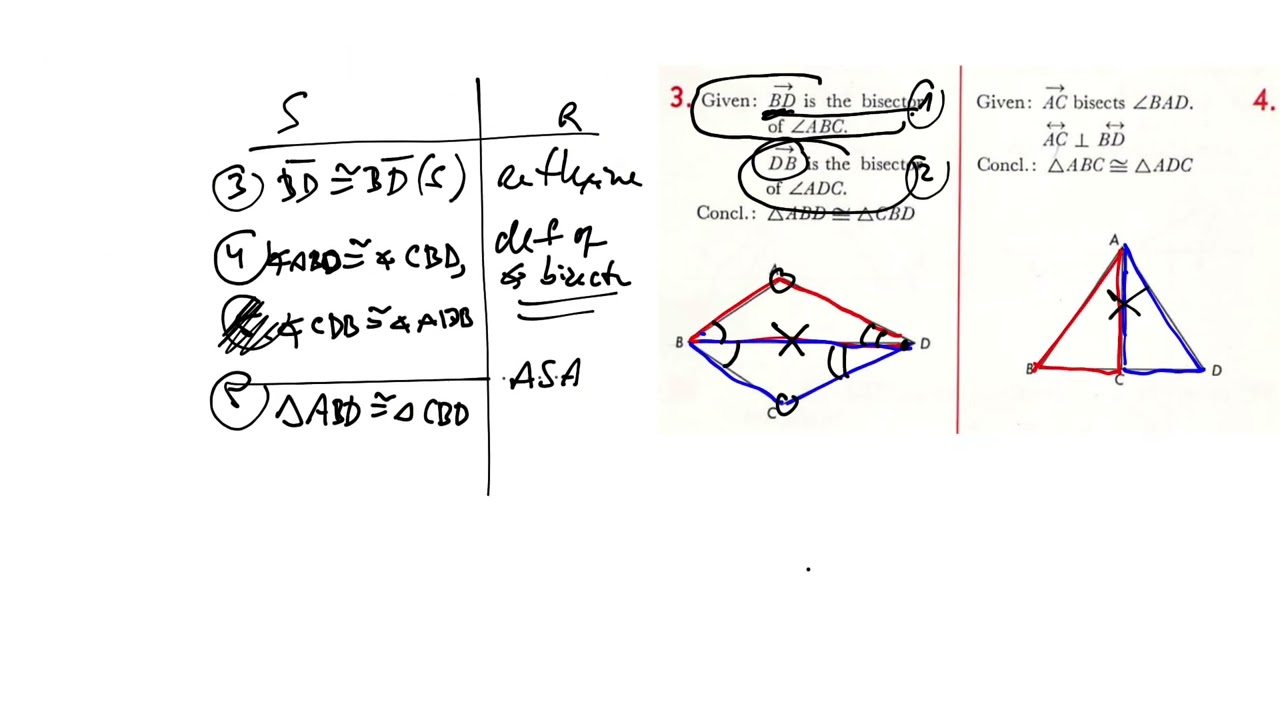 S R
③ BD ≅ BD (S) reflexive
④ ∡ABD ≅ ∡ CBD, def of
∡ bisector
∡ CDB ≅ ∡ ADB
⑤ △ABD ≅ △ CBD A.S.A
3. Given: BD is the bisector 1
of ∠ABC.
DB is the bisector 2
of ∠ADC.
Concl.: △ABD ≅ △CBD
A
B
D
C
Given: AC bisects ∠BAD.
AC ⊥ BD
Concl.: △ABC ≅ △ADC
A
B
C
D
4.